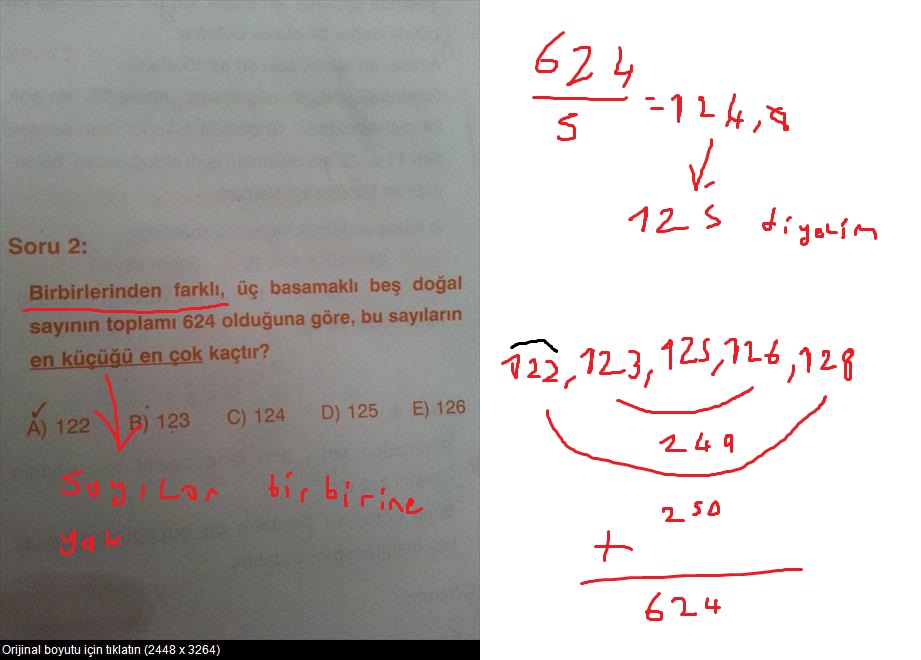 Soru 2:
Birbirlerinden farklı, üç basamaklı beş doğal
sayının toplamı 624 olduğuna göre, bu sayıların
en küçüğü en çok kaçtır?
A) 122 B) 123 C) 124 D) 125 E) 126
Sayılar birbirine
yak
Orijinal boyutu için tıklatın (2448 x 3264)
624
5
=124,
125 diyelim
122, 123, 125, 126, 128
249
250
+
624